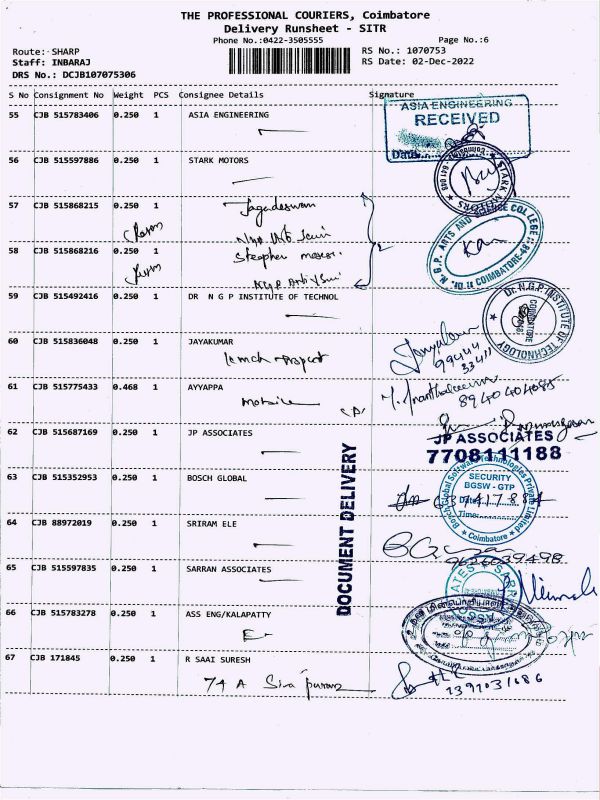 THE PROFESSIONAL COURIERS, Coimbatore
Delivery Runsheet - SITR
Phone No.:0422-3505555 Page No.:6
Route:- SHARP RS No.: 1070753
Staff: INBARAJ RS Date: 02-Dec-2022
DRS No.: DCJB107075306
S No Consignment No Weight PCS Consignee Details Signature
55 CJB 515783406 0.250 1 ASIA ENGINEERING
ASIA ENGINEERING
RECEIVED
Date
56 CJB 515597886 0.250 1 STARK MOTORS
STARK MOTORS
57 CJB 515868215 0.250 1 Jagadeswan
58 CJB 515868216 0.250 1 Stephen
N.G.P. ARTS AND SCIENCE COLLEGE
COIMBATORE-48
59 CJB 515492416 0.250 1 DR N G P INSTITUTE OF TECHNOL
Dr. N.G.P. INSTITUTE OF TECHNOLOGY
COIMBATORE
60 CJB 515836048 0.250 1 JAYAKUMAR
99444
33411
61 CJB 515775433 0.468 1 AYYAPPA
Mobile
8940404085
62 CJB 515687169 0.250 1 JP ASSOCIATES
JP ASSOCIATES
7708111188
DOCUMENT DELIVERY
63 CJB 515352953 0.250 1 BOSCH GLOBAL
Bosch Global Software Technologies Private Limited
SECURITY
BGSW - GTP
Date:
Time:
Coimbatore
64 CJB 88972019 0.250 1 SRIRAM ELE
9626039498
65 CJB 515597835 0.250 1 SARRAN ASSOCIATES
66 CJB 515783278 0.250 1 ASS ENG/KALAPATTY
67 CJB 171845 0.250 1 R SAAI SURESH
74 A